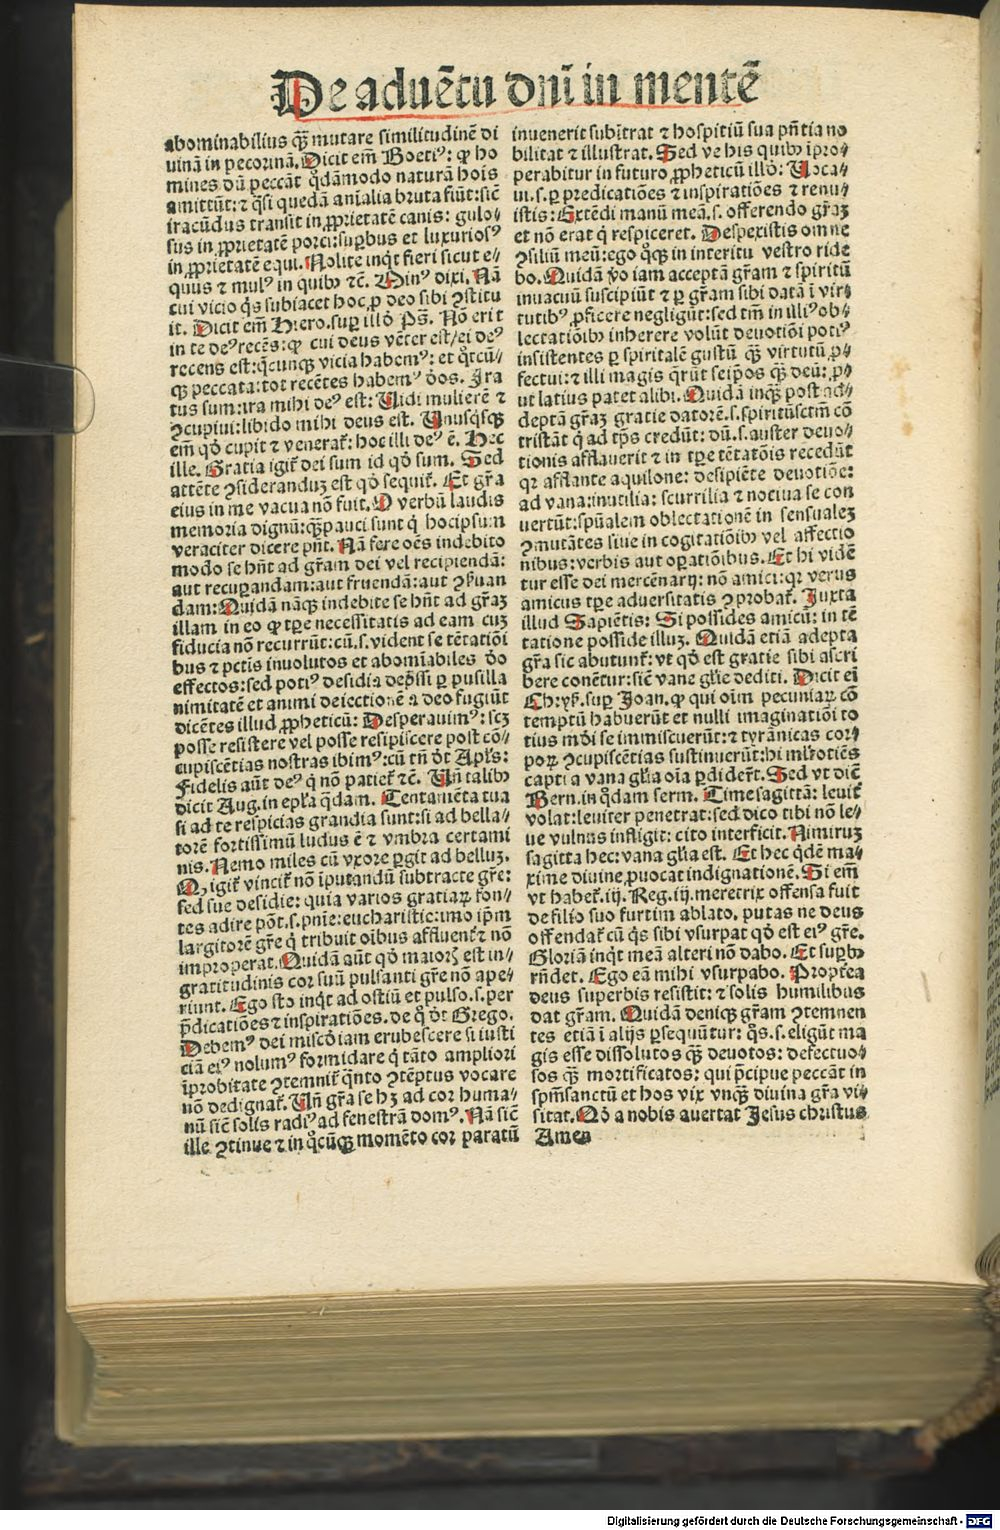 De aduētu dnī in mentē
abominabilius q̄ꝫ mutare similitudinē di
uinā in pecorinā. Dicit em̄ Boetiꝰ: ꝙ ho
mines dū peccāt q̊dāmodo naturā hoīs
amittūt: ⁊ q̄si quedā aīalia bruta fiūt: sic̄
iracūdus transit in ꝓprietatē canis: gulo/
sus in ꝓprietatē porci: suꝑbus et luxuriosꝰ
in ꝓprietatē equi. Nolite inq̄t fieri sicut e/
quus ⁊ mulꝰ in quibꝫ ⁊c̄. dixi. Nā
cui vicio q̄s subiacet hoc ꝓ deo sibi ꝯstitu
it. Dicit em̄ Hiero. suꝑ illō Ps̄. Nō erit
in te deꝰ recēs: ꝙ cui deus vēter est/ei deꝰ
recens est: q̄cunqꝫ vicia habemꝰ: et q̊tcū/
qꝫ peccata: tot recētes habemꝰ d̄os. Ira
tus sum: ira mihi deꝰ est: Uidi mulierē ⁊
ꝯcupiui: libido mihi deus est. Unusq̄sqꝫ
em̄ qd̄ cupit ⁊ venerat᷑: hoc illi deꝰ ē. Hec
ille. Gratia igit᷑ dei sum id qd̄ sum. Sed
attēte ꝯsideranduꝫ est qd̄ sequit᷑. Et gr̄a
eius in me vacua nō fuit. O verbū laudis
memoria dignū: q̄ꝫ pauci sunt q̄ hocipsum
veraciter dicere pn̄t. Nā fere oēs indebito
modo se hn̄t ad gr̄am dei vel recipiendā:
aut recuꝑandam: aut fruendā: aut ꝯẜuan
dam: Quidā nāqꝫ indebite se hn̄t ad gr̄aꝫ
illam in eo ꝙ tꝑe necessitatis ad eam cuꝫ
fiducia nō recurrūt: cū .s. vident se tētatiōi
bus ⁊ pctīs inuolutos et abomīabiles d̄o
effectos: sed potiꝰ desidia dep̄ssi ꝑ pusilla
nimitatē et animi deiectionē a deo fugiūt
dicētes illud ꝓpheticū: Desperauimꝰ: scꝫ
posse resistere vel posse resipiscere post cō/
cupiscētias nostras ibimꝰ: cū tn̄ d̄t Apl̄s:
Fidelis aūt deꝰ q̄ nō patiet᷑ ⁊c̄. Un̄ talibꝫ
dicit Aug. in epl̄a q̄dam. Tentamēta tua
si ad te respicias grandia sunt: si ad bella/
torē fortissimū ludus ē ⁊ vmbra certami
nis. Nemo miles cū vxore ꝑgit ad belluꝫ.
Qꝫ igit᷑ vincit᷑ nō īputandū subtracte gr̄e:
sed sue desidie: quia varios gratiaꝝ fon/
tes adire pōt .s. pn̄ie: eucharistie: imo ip̄m
largitorē gr̄e q̄ tribuit oībus affluent̄ ⁊ nō
improperat. Quidā aūt qd̄ maior est in/
gratitudinis cor suū pulsanti gr̄e nō ape/
riunt. Ego sto inq̄t ad ostiū et pulso .s. per
p̄dicatiōes ⁊ inspiratiōes. de q̊ d̄t Grego.
Debemꝰ dei misc̄d̄iam erubescere si iusti
ciā eiꝰ nolumꝰ formidare q̄ tāto ampliori
īprobitate ꝯtemnit᷑ q̄nto ꝯtēptus vocare
nō dedignat᷑. Un̄ gr̄a se hꝫ ad cor huma/
nū sic̄ solis radiꝰ ad fenestrā domꝰ. Nā sic̄
ille ꝯtinue ⁊ in q̊cūqꝫ momēto cor paratū
inuenerit subītrat ⁊ hospitiū sua pn̄tia no
bilitat ⁊ illustrat. Sed ve his quibꝫ īpro/
perabitur in futuro ꝓpheticū illō: Uoca/
ui .s. ꝑ predicatiōes ⁊ inspiratiōes ⁊ renu/
istis: Extēdi manū meā .s. offerendo gr̄aꝫ
et nō erat q̄ respiceret. Despexistis omne
ꝯsiliū meū: ego q̊qꝫ in interitu vestro ride
bo. Quidā v̄o iam acceptā gr̄am ⁊ spiritū
inuacuū suscipiūt ⁊ ꝑ gr̄am sibi datā ī vir/
tutibꝰ ꝓficere negligūt: sed tm̄ in illiꝰ ob/
lectatiōibꝫ inherere volūt deuotiōi potiꝰ
insistentes ꝑ spiritalē gustū q̄ꝫ virtutū ꝓ/
fectui: ⁊ illi magis q̄rūt seip̄os q̄ꝫ deū: ꝓ/
ut latius patet alibi. Quidā inqꝫ post ad/
deptā gr̄aꝫ gratie datorē .s. spiritūsctm̄ cō
tristāt q̄ ad tp̄s credūt: dū .s. auster deuo/
tionis afflauerit ⁊ in tꝑe tētatōis recedūt
qꝛ afflante aquilone: desipiēte deuotiōe:
ad vana: inutilia: scurrilia ⁊ nociua se con
uertūt: spūalem oblectationē in sensualeꝫ
ꝯmutātes siue in cogitatiōibꝫ vel affectio
nibus: verbis aut oꝑatiōibus. Et hi vidē
tur esse dei mercēnarij: nō amici: qꝛ verus
amicus tꝑe aduersitatis ꝯprobat᷑. Iuxta
illud Sapiētis: Si possides amicū: in tē
tatione posside illuꝫ. Quidā etiā adepta
gr̄a sic abutunt᷑: vt qd̄ est gratie sibi ascri
bere conētur: sic̄ vane gl̄ie dediti. Dicit ei
Chryẜ. suꝑ Joan. ꝙ qui oīm pecuniaꝝ cō
temptū habuerūt et nulli imaginatiōi to
tius mōi se immiscuerūt: ⁊ tyrānicas cor/
poꝝ ꝯcupiscētias sustinuerūt: hi ml̄totiēs
capti a vana gl̄ia oīa ꝑdider̄t. Sed vt dic̄
Bern. in q̊dam serm. Time sagittā: leuit᷑
volat: leuiter penetrat: sed dico tibi nō le/
ue vulnus infligit: cito interficit. Nimiruꝫ
sagitta hec: vana gl̄ia est. Et hec q̄dē ma/
xime diuinę ꝓuocat indignationē. Si em̄
vt habet᷑ .iij. Reg. iij. meretrix offensa fuit
de filio suo furtim ablato. putas ne deus
offendat᷑ cū q̄s sibi vsurpat qd̄ est eiꝰ gr̄e.
Gloriā inq̄t meā alteri nō dabo. Et suꝑbꝫ
rn̄det. Ego eā mihi vsurpabo. Propt̄ea
deus superbis resistit: ⁊ solis humilibus
dat gr̄am. Quidā deniqꝫ gr̄am ꝯtemnen
tes etiā ī alijs ꝑsequūtur: q̄s .s. eligūt ma
gis esse dissolutos q̄ꝫ deuotos: defectuo/
sos q̄ꝫ mortificatos: qui p̄cipue peccāt in
spm̄sanctū et hos vix vnq̄ꝫ diuina gr̄a vi/
sitat. Qd̄ a nobis auertat Jesus christus
Amen
Digitalisierung gefördert durch die Deutsche Forschungsgemeinschaft - DFG